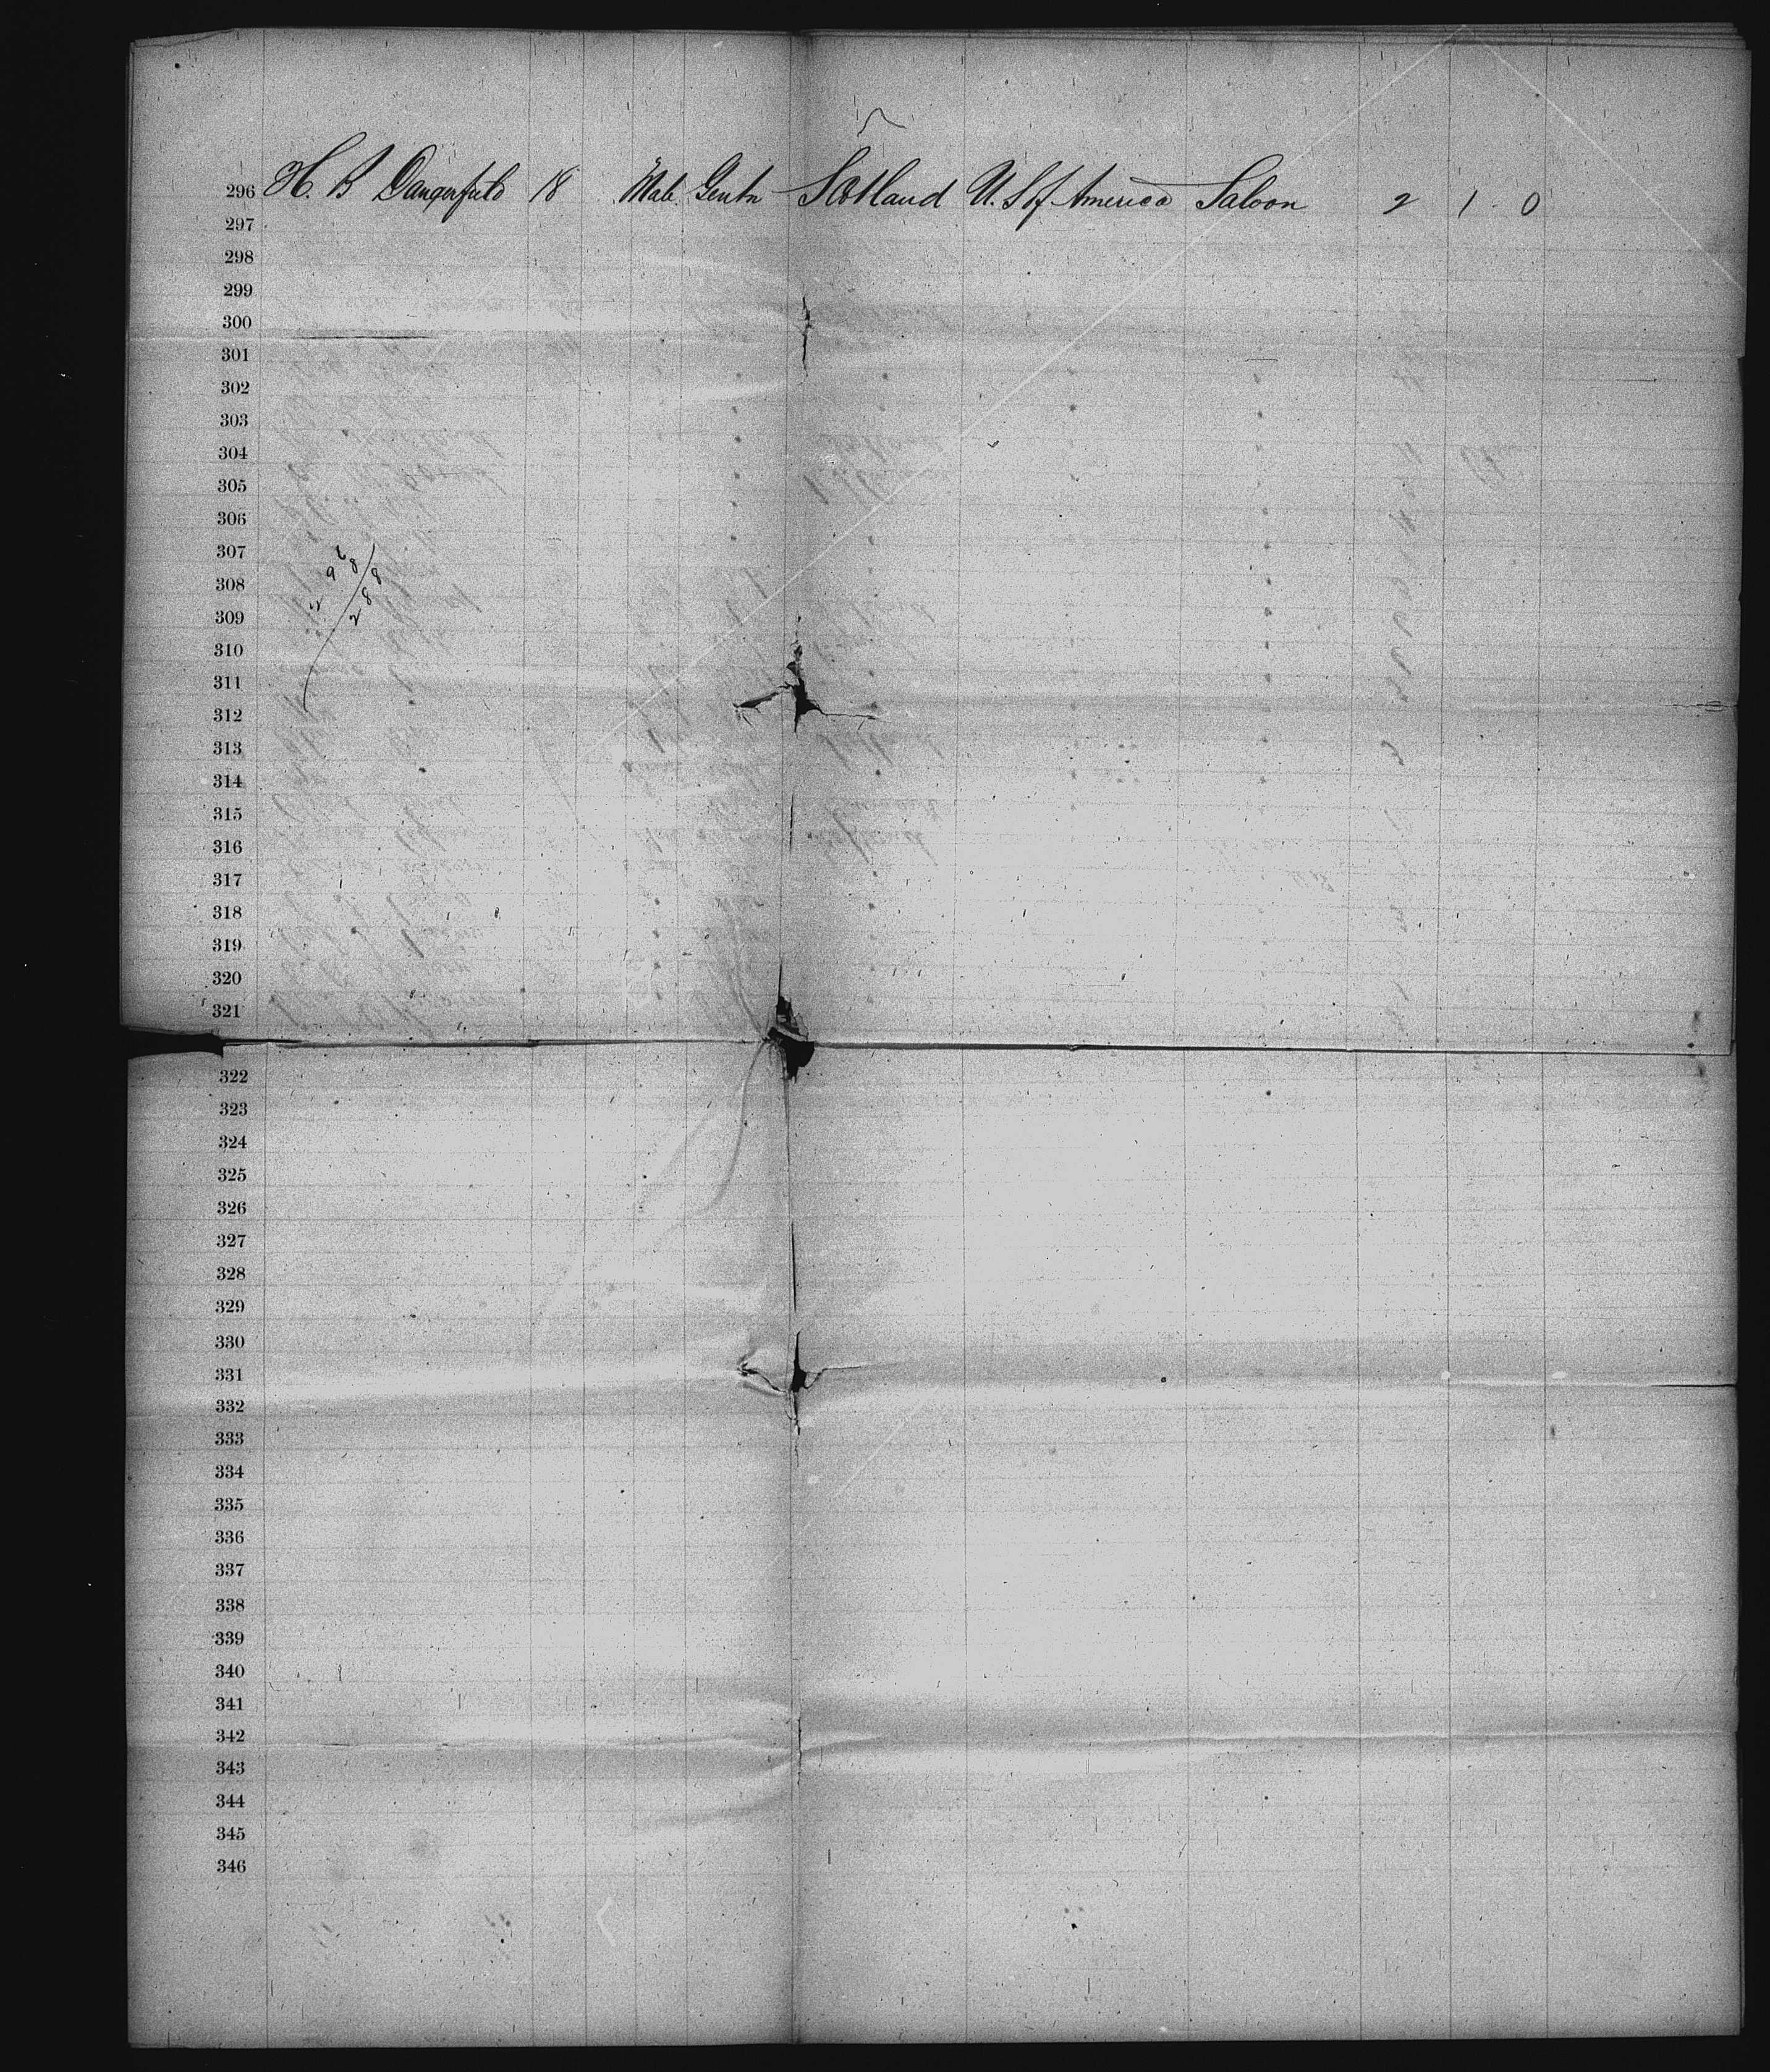 296 H. B Dangerfield 18 Male Gentn Scotland U. S of America Saloon 2 1 0
297
298
299
300
301
302
303
304
305
306
307
308
309
310
311
312
313
314
315
316
317
318
319
320
321
322
323
324
325
326
327
328
329
330
331
332
333
334
335
336
337
338
339
340
341
342
343
344
345
346
288